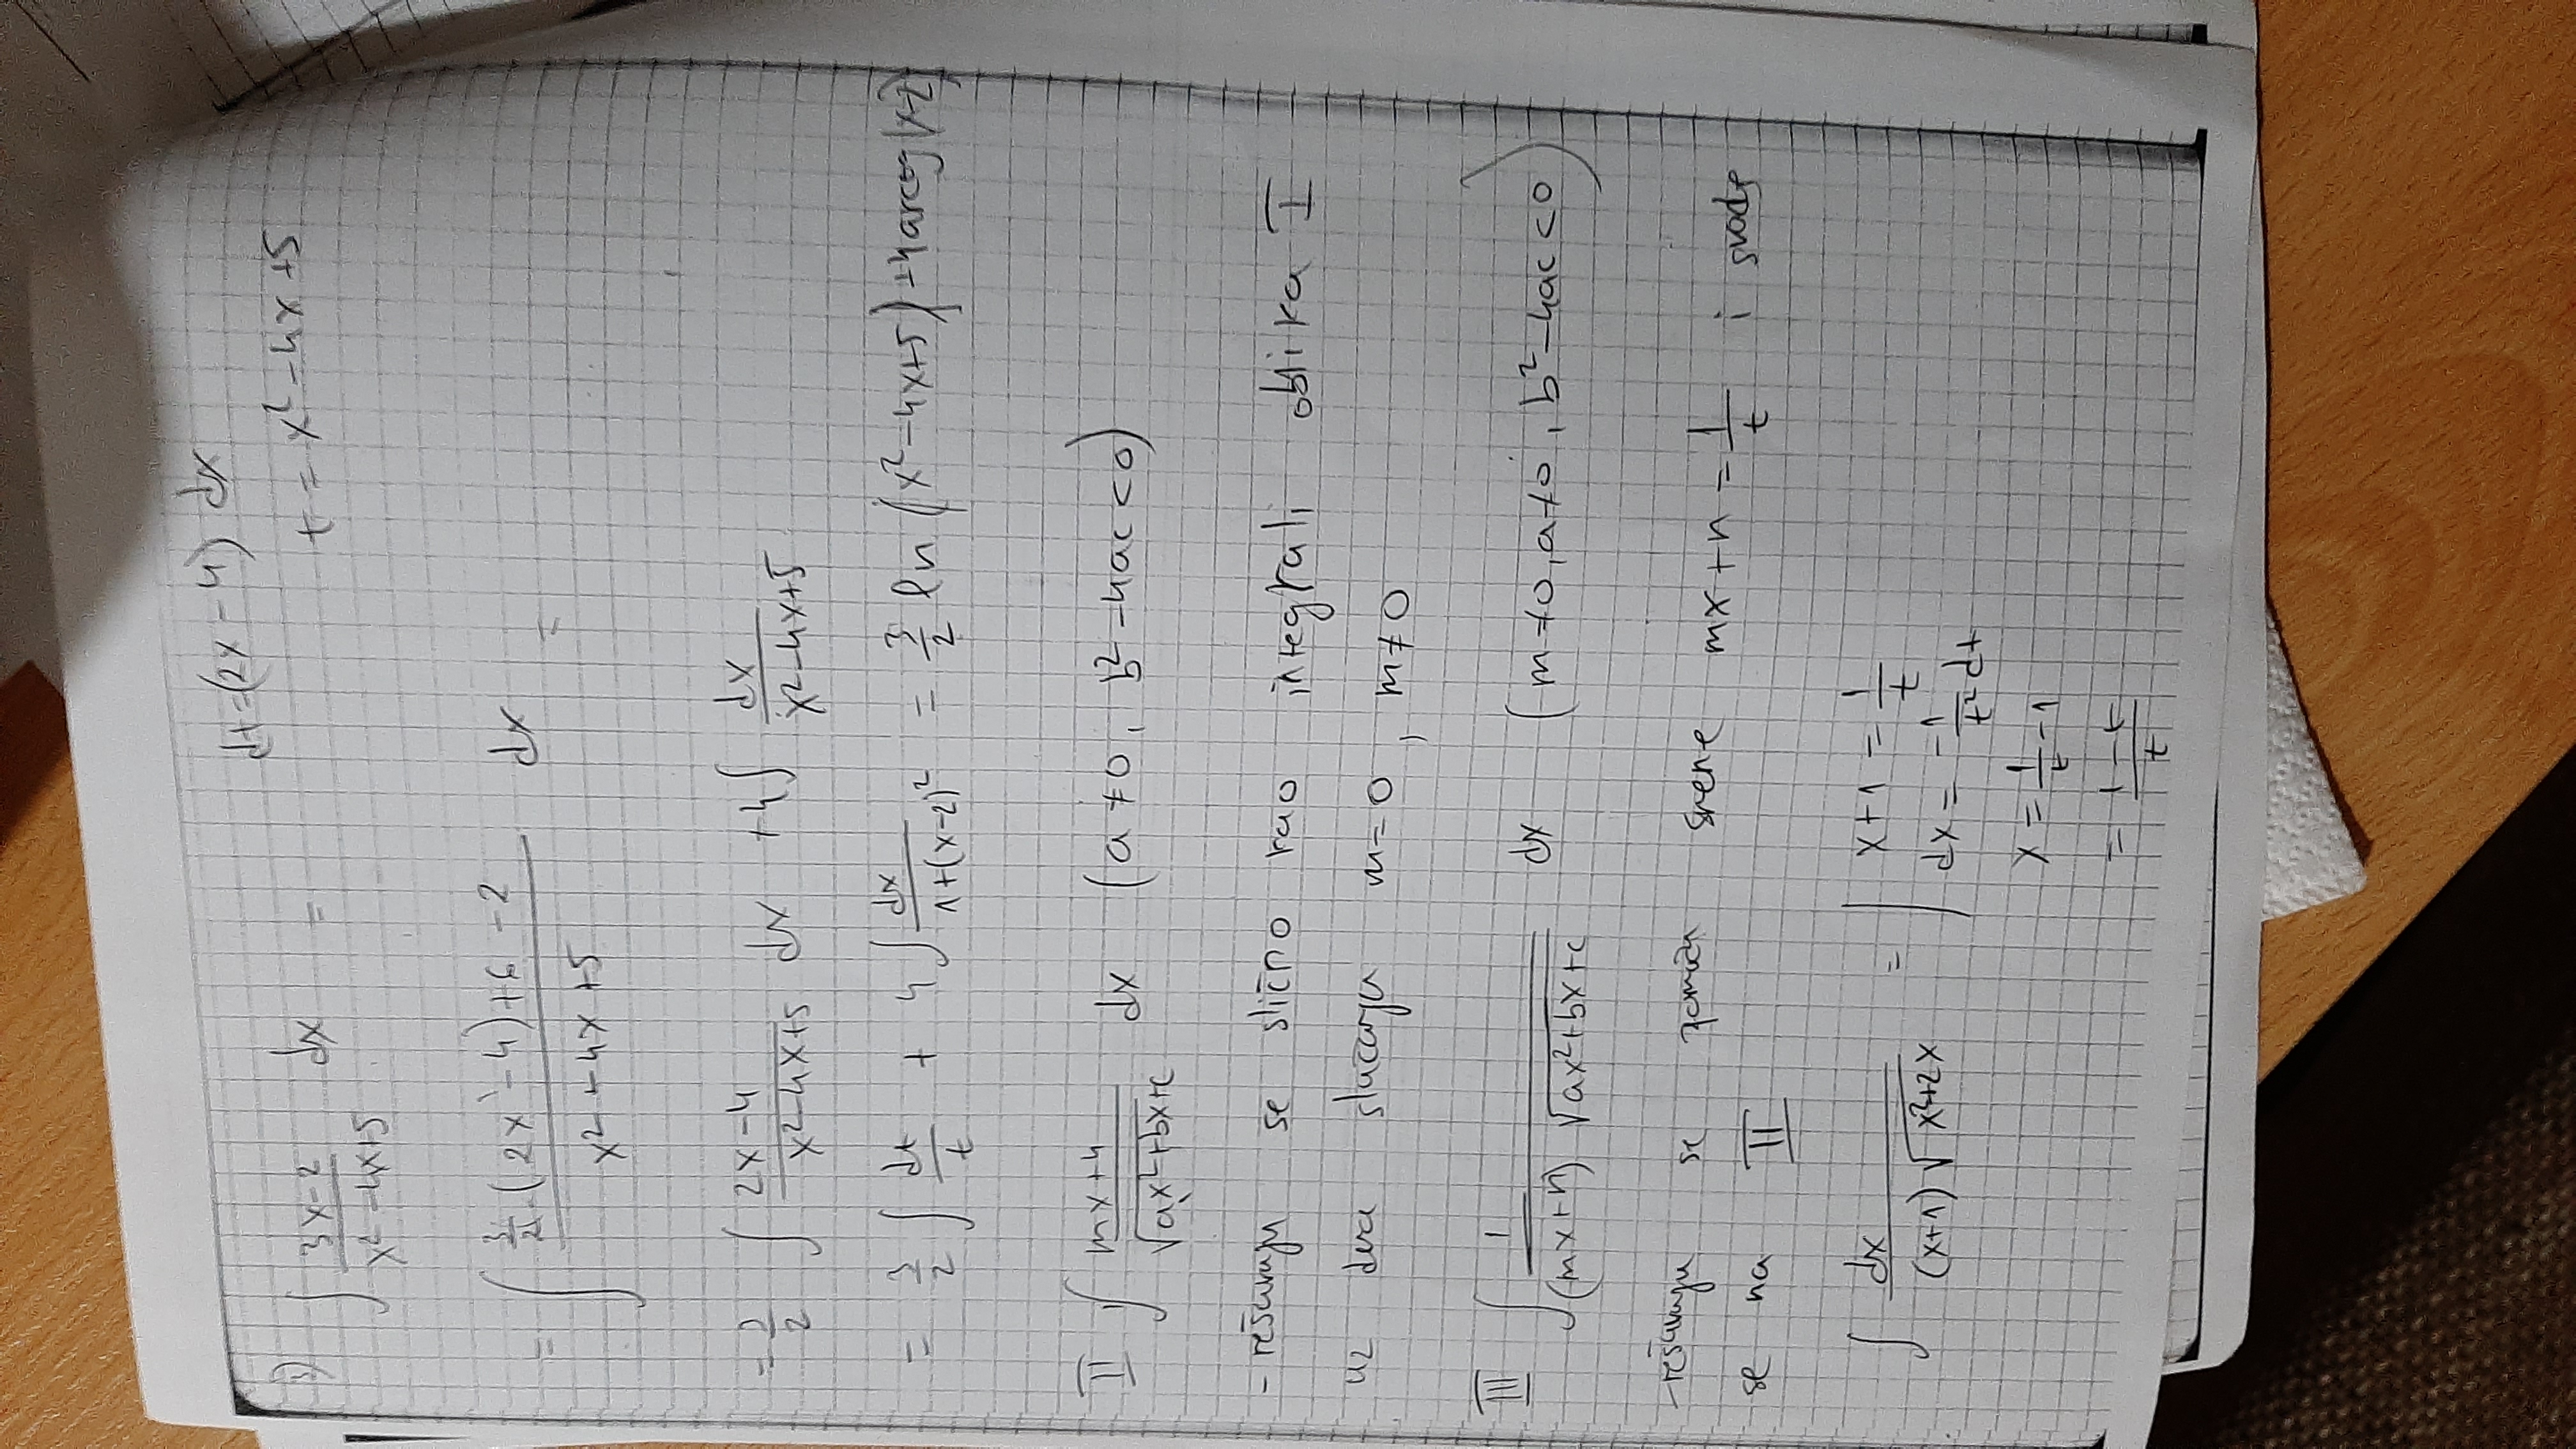 dt=(2x-4) dx
3) ∫ (3x-2)/(x²-4x+5) dx = t = x²-4x+5
= ∫ (3/2·(2x-4)+6-2)/(x²-4x+5) dx =
= 3/2 ∫ (2x-4)/(x²-4x+5) dx +4∫ dx/(x²-4x+5)
= 3/2 ∫ dt/t + 4∫ dx/(1+(x-2)²) = 3/2 ln (x²-4x+5) +4 arctg(x-2)
II ∫ (mx+4)/√(ax²+bx+c) dx (a≠0, b²-4ac<0)
- rešavaju se slično kao integrali oblika I
uz dva slučaja m=0, m≠0
III ∫ 1/((mx+n) √(ax²+bx+c)) dx (m≠0, a≠0, b²-4ac<0)
- rešavaju se pomoću smene mx+n = 1/t i svode
se na II
∫ dx/((x+1)√(x²+2x)) = | x+1 = 1/t
dx = -1/t² dt
x = 1/t - 1
= (1-t)/t